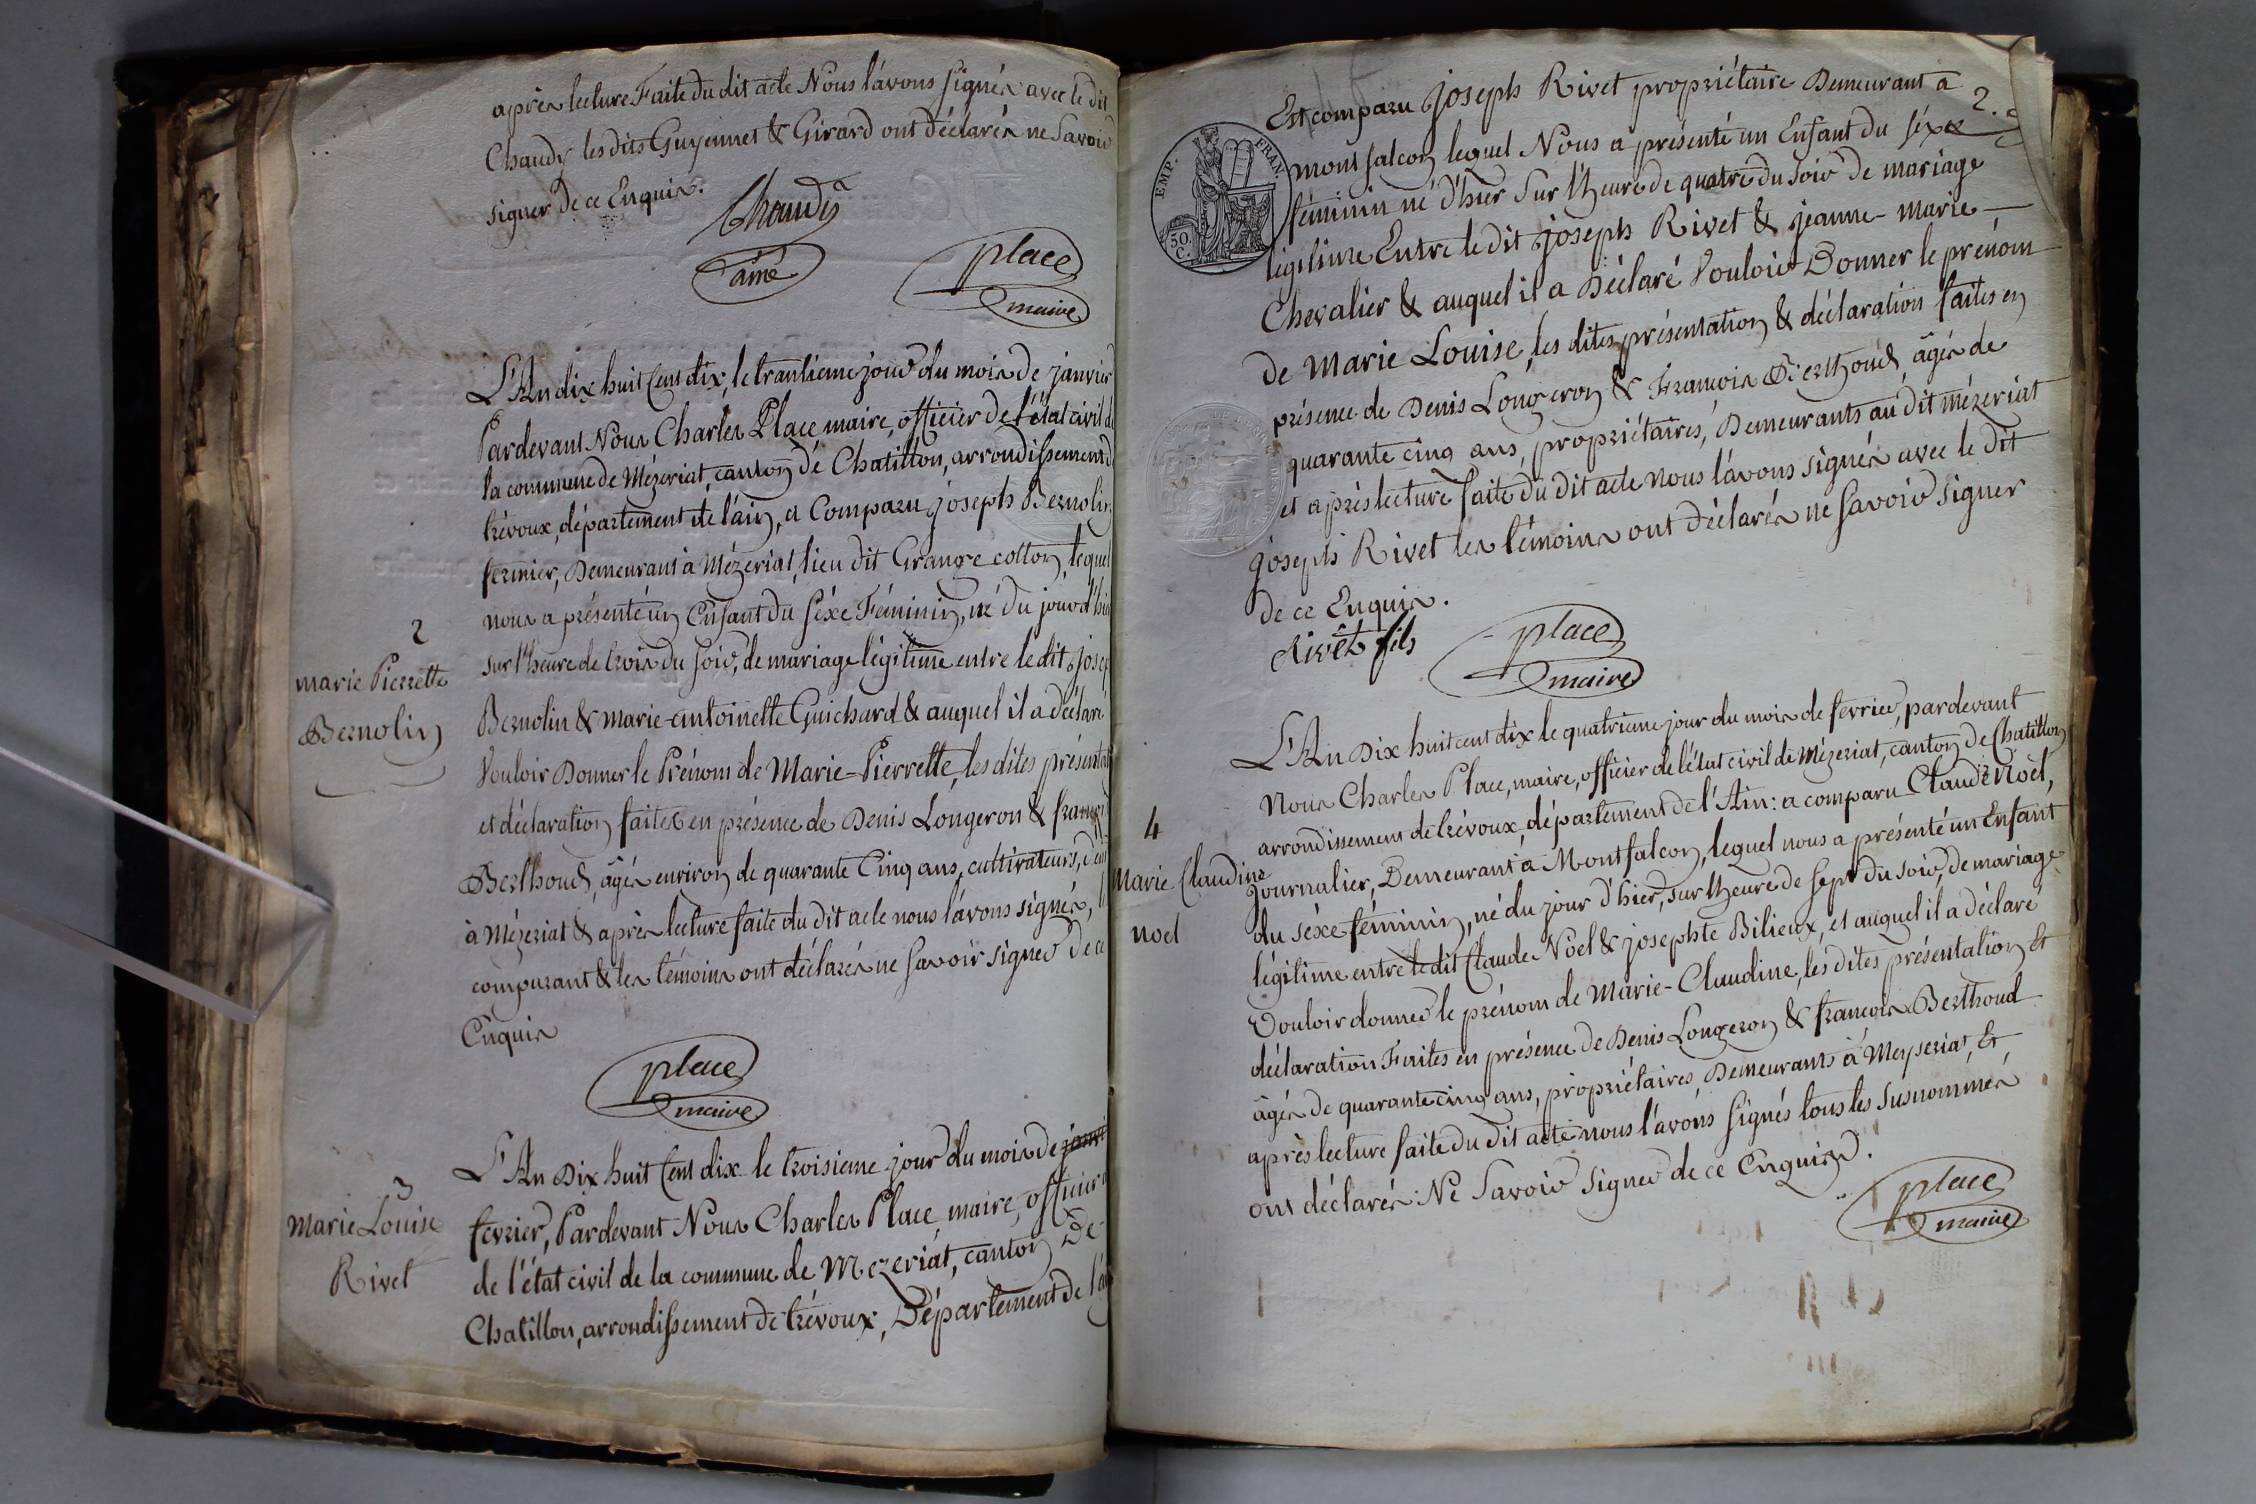 après lecture Faite du dit acte Nous l'avons signés avec le dit
Chaudy les dits Guyennet & Girard ont déclarés ne Savoir
signer de ce Enquis.
Chaudy
ainé
place
maire
L'An dix huit Cent dix, le trantième jour du mois de janvier
Pardevant Nous Charles Place maire, officier de l'état civil de
la commune de Mézeriat, canton de Chatillon, arrondissement de
trévoux, département de l'ain, a Comparu joseph Bernolin
fermier, Demeurant à Mézeriat, lieu dit Grange cotton, lequel
nous a présenté un Enfant du séxe Féminin, né du jour d'hier
2
marie Pierrette
Bernolin
sur l'heure de trois du soir, de mariage légitime entre le dit joseph
Bernolin & marie-antoinette Guichard & auquel il a déclaré
Vouloir Donner le Prénom de Marie-Pierrette, les dites présentation
et déclaration faites en présence de Denis Longeron & françois
Berthoud, âgés environ de quarante Cinq ans, cultivateurs, dem
à Mézeriat & après lecture faite du dit acte nous l'avons signés, le
comparant & les témoins ont déclarés ne Savoir signer de ce
Enquis
place
maire
3
Marie Louise
Rivet
L'An Dix huit Cent dix le troisieme jour du mois de janvi
fevrier, Pardevant Nous Charles Place maire, officier
de l'état civil de la commune de Mezeriat, canton De
Chatillon, arrondissement de trévoux, Département de l'ain
2.
EMP. FRAN.
50. C.
Est comparu joseph Rivet propriétaire Demeurant a
montfalcon lequel Nous a présenté un Enfant du séxe
féminin né d'hier Sur l'Heure de quatre du soir de mariage
légitime Entre le dit joseph Rivet & jeanne-marie
Chevalier & auquel il a Déclaré Vouloir Donner le prénom
de Marie Louise, les dites présentation & déclaration faites en
présence de Denis Longeron & François Berthoud, âgés de
quarante cinq ans, propriétaires, Demeurants au dit mézeriat
et après lecture faite du dit acte nous l'avons signés avec le dit
joseph Rivet les témoins ont déclarés ne savoir signer
de ce Enquis.
Rivet fils
place
maire
4
Marie Claudine
noel
L'An Dix huit cent dix le quatrieme jour du mois de fevrier, pardevant
Nous Charles Place, maire, officier de l'état civil de Mézeriat, canton de Chatillon
arrondissement de trévoux, département de l'Ain: a comparu Claude Noël,
journalier, Demeurant a Montfalcon, lequel nous a présenté un Enfant
du séxe féminin, né du jour d'hier, sur l'heure de sept du soir, de mariage
légitime entre le dit Claude Noël & josephte Bilieux, et auquel il a déclaré
Vouloir donner le prénom de Marie-Claudine, les dites présentation et
déclaration Faites en présence de Denis Longeron & francois Berthoud
âgés de quarante cinq ans, propriétaires, Demeurants à Meyseriat, Et,
après lecture faite du dit acte nous l'avons signés tous les susnommés
ont déclarés Ne Savoir Signer de ce Enquis.
place
maire